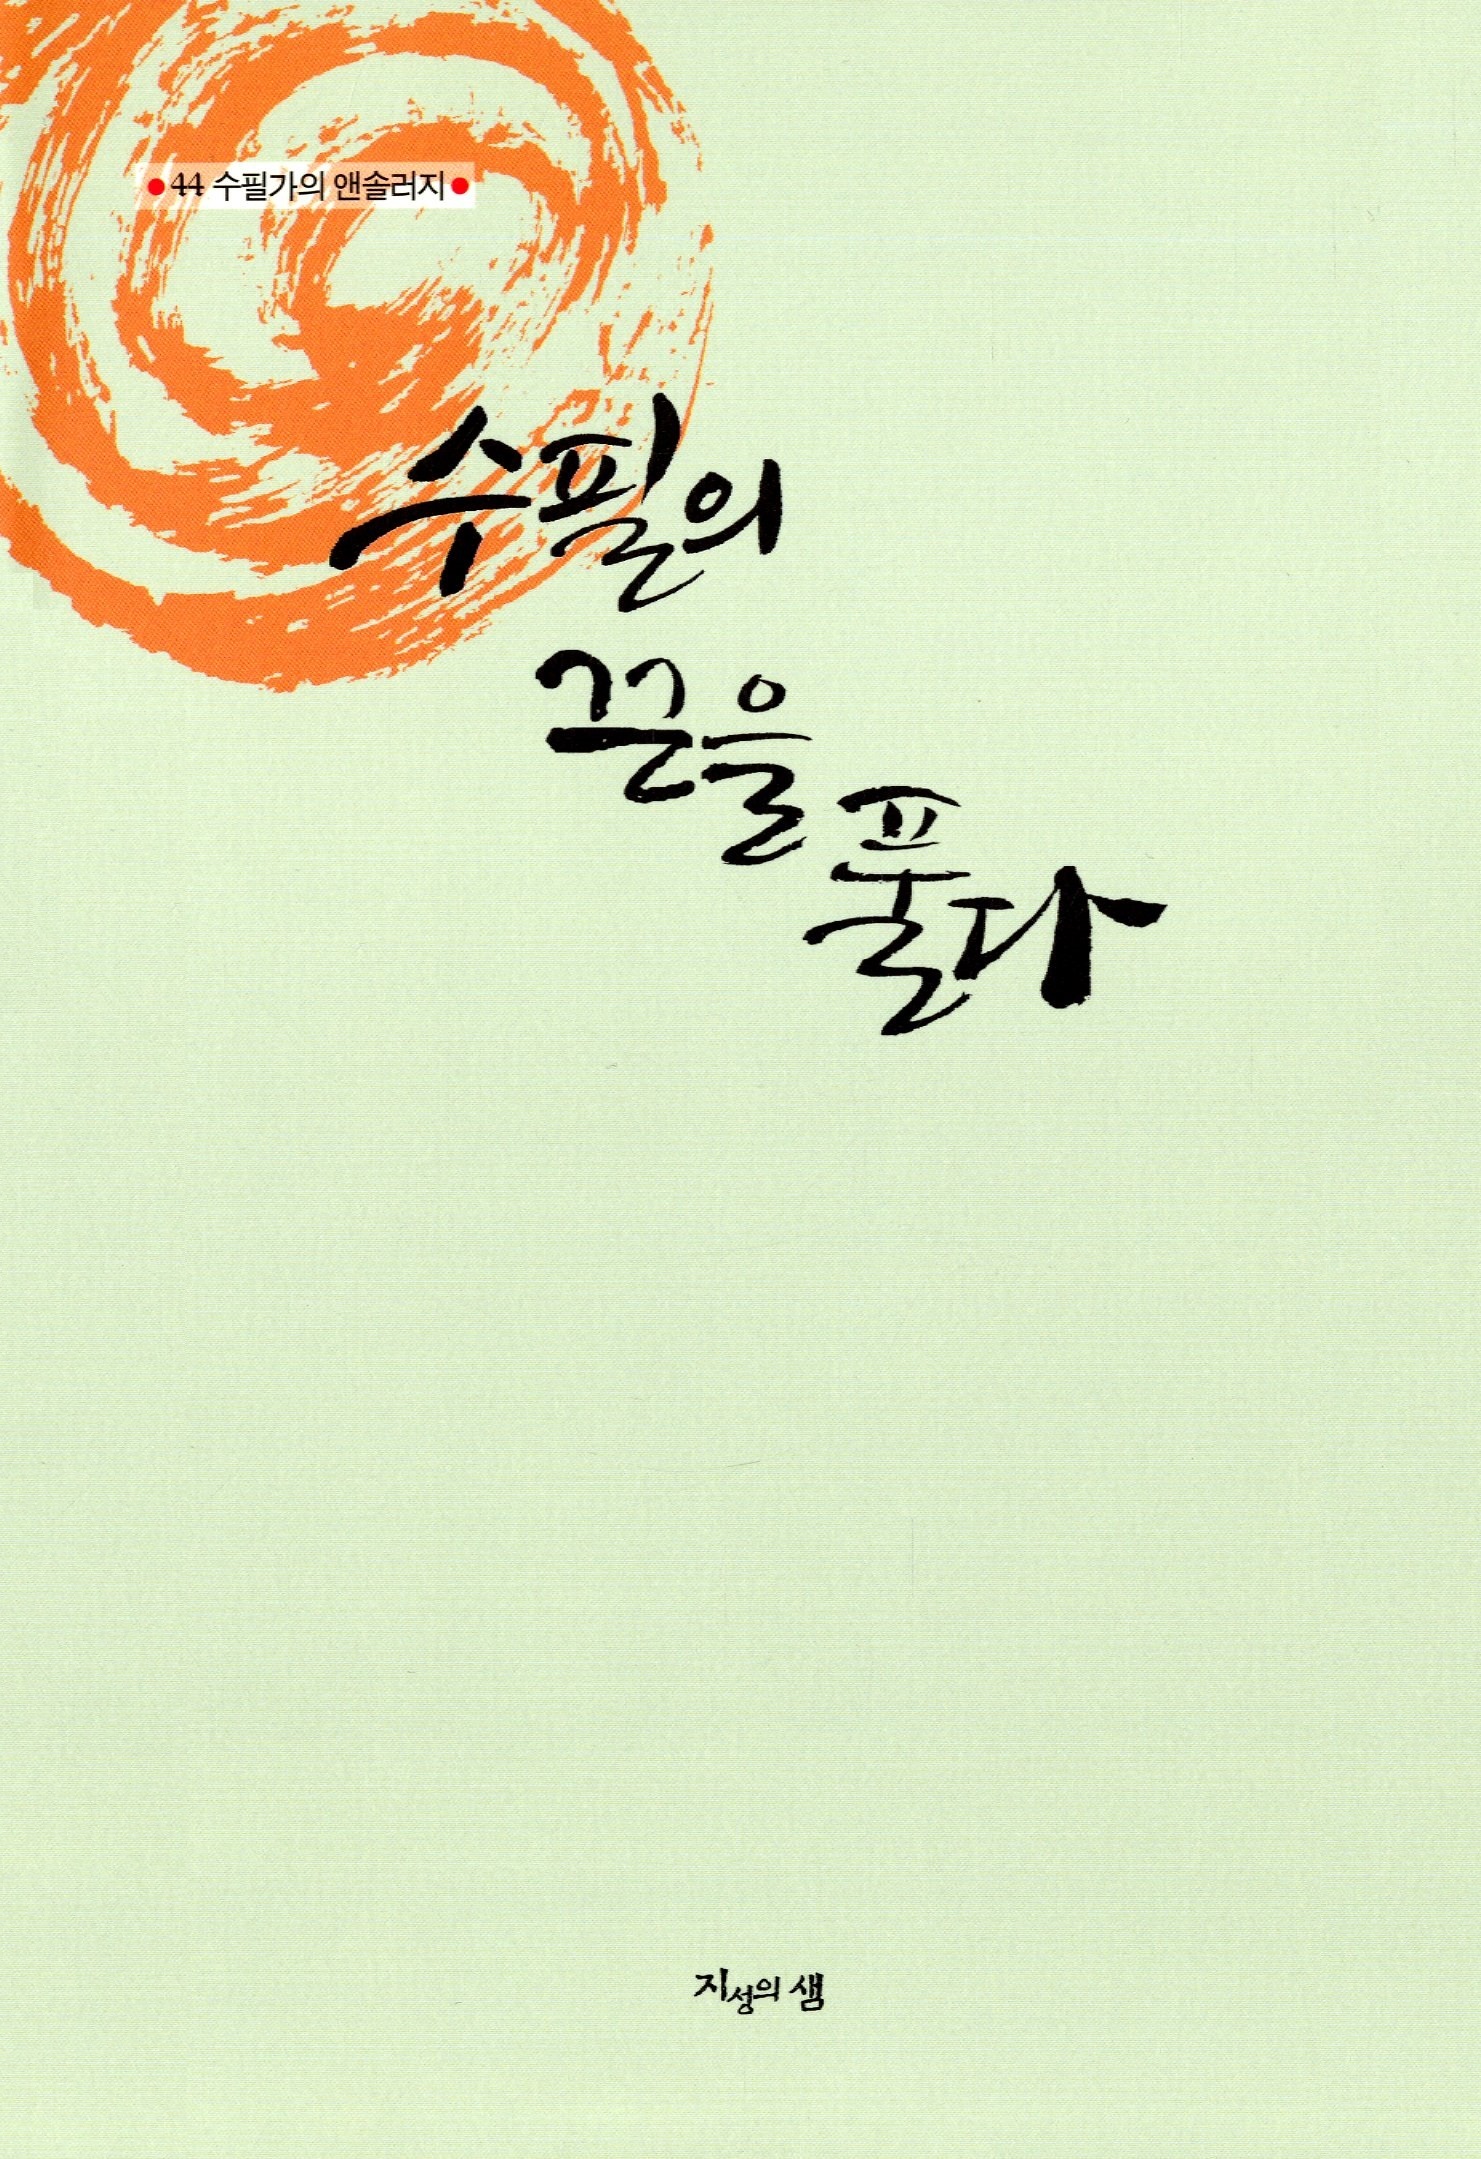 ● 44 수필가의 앤솔러지 ●
수필의
끈을
풀다
지성의 샘